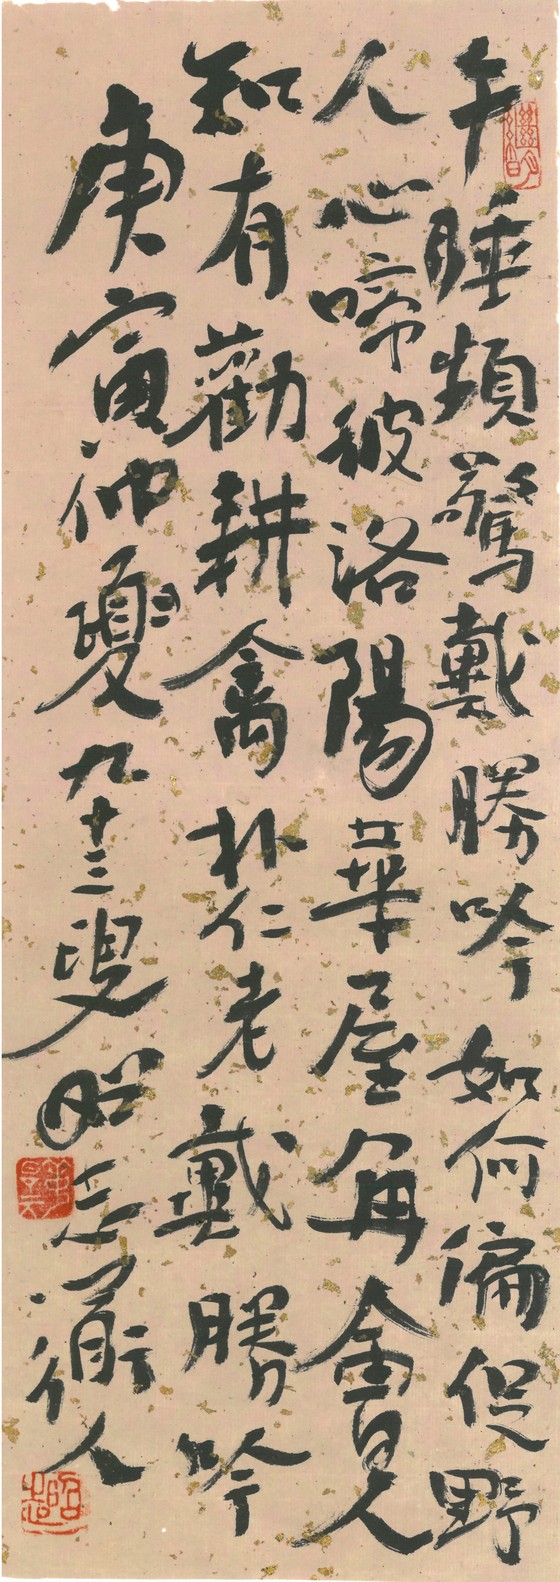 午睡頻驚戴勝吟如何偏促野
人心啼彼洛陽華屋角會人
知有勸耕禽朴仁老戴勝吟
庚寅仲夏九十三叟